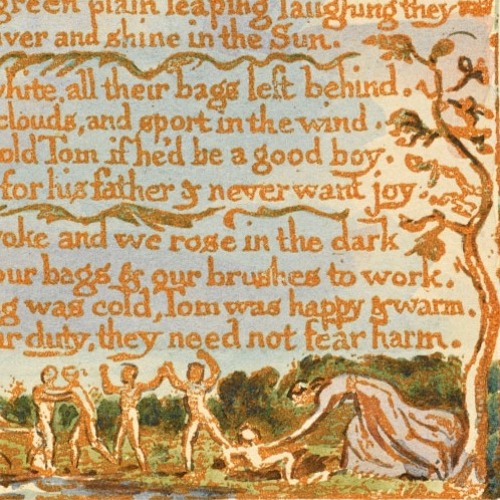 green plain leaping laughing they
iver and shine in the Sun.
white all their bags left behind.
clouds, and sport in the wind
old Tom if he'd be a good boy.
for his father & never want joy.
oke and we rose in the dark
our bags & our brushes to work.
g was cold, Tom was happy & warm.
ir duty, they need not fear harm.